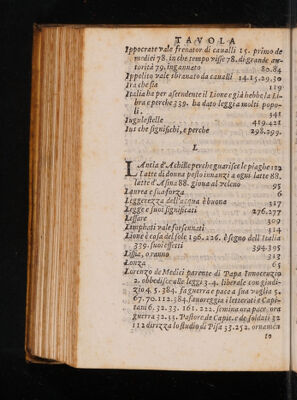 TAVOLA
Ippocrate vale frenator di caualli 15. primo de
medici 78. in che tempo visse 78. di grande au-
torità 79. ingannato 80.84
Ippolito vale sbranato da caualli 14.15.29.30
Ira che sia 119
Italia ha per ascendente il Lione e già hebbe la Li-
bra e perche 339. ha dato leggi a molti popo-
li. 341
Iugule stelle 419.421
Ius che significhi, e perche 298.299.
L
LAncia d'Achille perche guarisce le piaghe 112
Latte di donna posto innanzi a ogni latte 88.
latte d'Asina 88. gioua al veleno 95
Laurea e sua forza 6
Leggerezza dell'acqua è buona 317
Legge e suoi significati 276.277
Lessare 309
Limphati vale forsennati 314
Lione è casa del sole 196.226. è segno dell'Italia
339. suoi effetti 394.395
Lissa, o ranno 313
Lonza 63
Lorenzo de Medici parente di Papa Innocenzio
2. obbedisce alle leggi 3.4. liberale con giudi-
zio 4.5.384. fa guerra e pace a sua voglia 5.
67.70.112.384. fauoreggia i letterati e Capi-
tani 6.32.33.161.222. semina ora pace ora
guerra 32.33. Pastore de Capit. e de soldati 32
112 dirizza lo studio di Pisa 33.252. ornamen
to